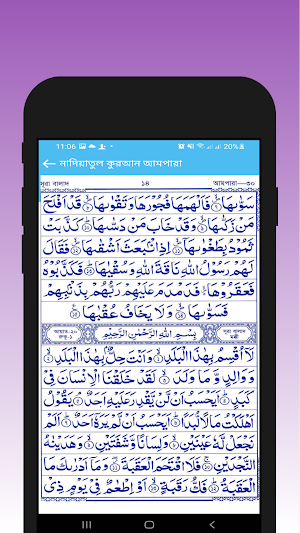 11:06 20%
← নাদিয়াতুল কুরআন আমপারা
সূরা বালাদ ১৪ আমপারা—৩০
سَوّٰىهَا ۪ۙ فَاَلْهَمَهَا فُجُوْرَهَا وَتَقْوٰىهَا ۪ۙ قَدْ اَفْلَحَ
مَنْ زَكّٰىهَا ۪ۙ وَقَدْ خَابَ مَنْ دَسّٰىهَا ؕ كَذَّبَتْ
ثَمُوْدُ بِطَغْوٰىهَا ۪ۙ اِذِ انْۢبَعَثَ اَشْقٰىهَا ۪ۙ فَقَالَ
لَهُمْ رَسُوْلُ اللّٰهِ نَاقَةَ اللّٰهِ وَسُقْيٰهَا ؕ فَكَذَّبُوْهُ
فَعَقَرُوْهَا ۪ۙ فَدَمْدَمَ عَلَيْهِمْ رَبُّهُمْ بِذَنْۢبِهِمْ
فَسَوّٰىهَا ۪ۙ وَلَا يَخَافُ عُقْبٰهَا
بِسْمِ اللّٰهِ الرَّحْمٰنِ الرَّحِيْمِ
لَاۤ اُقْسِمُ بِهٰذَا الْبَلَدِ ۙ وَاَنْتَ حِلٌّۢ بِهٰذَا الْبَلَدِ ۙ
وَوَالِدٍ وَّمَا وَلَدَ ۙ لَقَدْ خَلَقْنَا الْاِنْسَانَ فِىْ
كَبَدٍ ؕ اَيَحْسَبُ اَنْ لَّنْ يَّقْدِرَ عَلَيْهِ اَحَدٌ ۘ يَقُوْلُ
اَهْلَكْتُ مَالًا لُّبَدًا ؕ اَيَحْسَبُ اَنْ لَّمْ يَرَهٗۤ اَحَدٌ ؕ اَلَمْ
نَجْعَلْ لَّهٗ عَيْنَيْنِ ۙ وَلِسَانًا وَّشَفَتَيْنِ ۙ وَهَدَيْنٰهُ
النَّجْدَيْنِ ۚ فَلَا اقْتَحَمَ الْعَقَبَةَ ؗۖ وَمَاۤ اَدْرٰىكَ مَا
الْعَقَبَةُ ؕ فَكُّ رَقَبَةٍ ۙ اَوْ اِطْعٰمٌ فِىْ يَوْمٍ ذِىْ